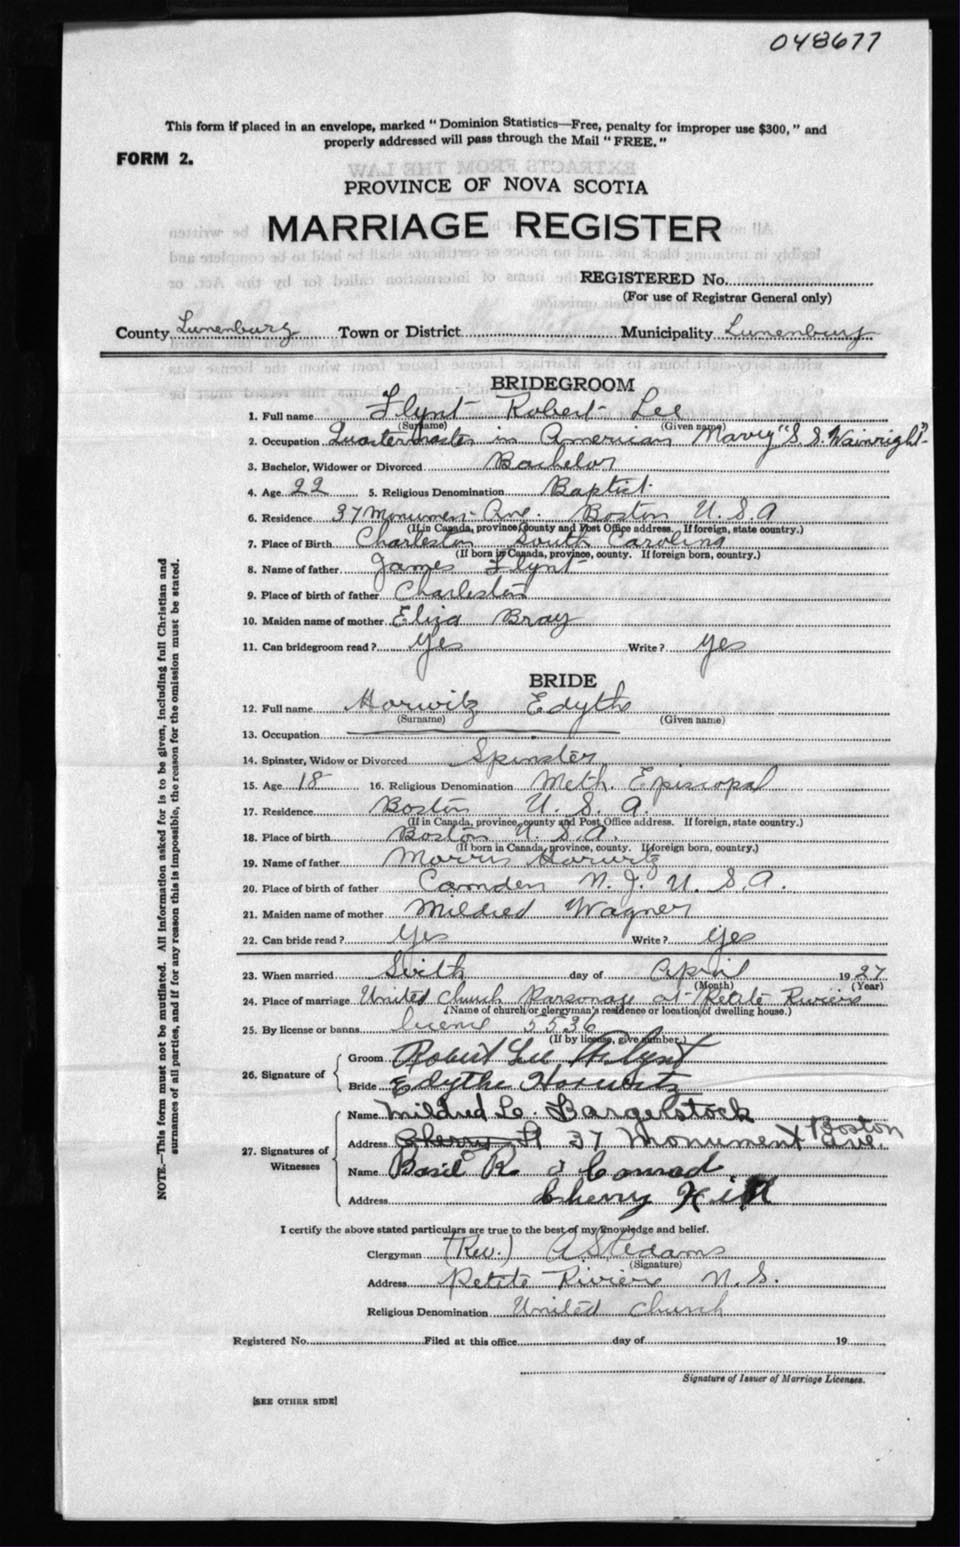 048677
This form if placed in an envelope, marked "Dominion Statistics—Free, penalty for improper use $300," and
properly addressed will pass through the Mail "FREE."
FORM 2.
EXTRACTS FROM THE LAW
PROVINCE OF NOVA SCOTIA
MARRIAGE REGISTER
REGISTERED No.
(For use of Registrar General only)
County Lunenburg Town or District Municipality Lunenburg
BRIDEGROOM
1. Full name Flynt Robert Lee
(Surname) (Given name)
2. Occupation Quartermaster in American Navy "S.S. Wainright"
3. Bachelor, Widower or Divorced Bachelor
4. Age 22 5. Religious Denomination Baptist
6. Residence 37 Monumen Ave. Boston U.S.A
(If in Canada, province, county and Post Office address. If foreign, state country.)
7. Place of Birth Charleston South Carolina
(If born in Canada, province, county. If foreign born, country.)
8. Name of father James Flynt
9. Place of birth of father Charleston
10. Maiden name of mother Eliza Bray
11. Can bridegroom read? Yes Write? Yes
BRIDE
12. Full name Horwitz Edythe
(Surname) (Given name)
13. Occupation
14. Spinster, Widow or Divorced Spinster
15. Age 18 16. Religious Denomination Meth. Episcopal
17. Residence Boston U.S.A.
(If in Canada, province, county and Post Office address. If foreign, state country.)
18. Place of birth Boston U.S.A.
(If born in Canada, province, county. If foreign born, country.)
19. Name of father Morris Horwitz
20. Place of birth of father Camden N.J. U.S.A.
21. Maiden name of mother Mildred Wagner
22. Can bride read? Yes Write? Yes
23. When married Sixth day of April 1927
(Month) (Year)
24. Place of marriage United Church Parsonage at Petite Riviere
(Name of church or clergyman's residence or location of dwelling house.)
25. By license or banns license 5536
(If by license, give number.)
26. Signature of
Groom Robert Lee Flynt
Bride Edythe Horwitz
27. Signatures of Witnesses
Name Mildred L. Bargelstock
Address Cherry St 37 Monument Ave. Boston
Name Basil R. Conrad
Address Cherry Hill
I certify the above stated particulars are true to the best of my knowledge and belief.
Clergyman (Rev.) A S Adams
(Signature)
Address Petite Riviere N.S.
Religious Denomination United Church
Registered No. Filed at this office day of 19
Signature of Issuer of Marriage Licenses.
[SEE OTHER SIDE]
NOTE.—This form must not be mutilated. All information asked for is to be given, including full Christian and
surnames of all parties, and if for any reason this is impossible, the reason for the omission must be stated.